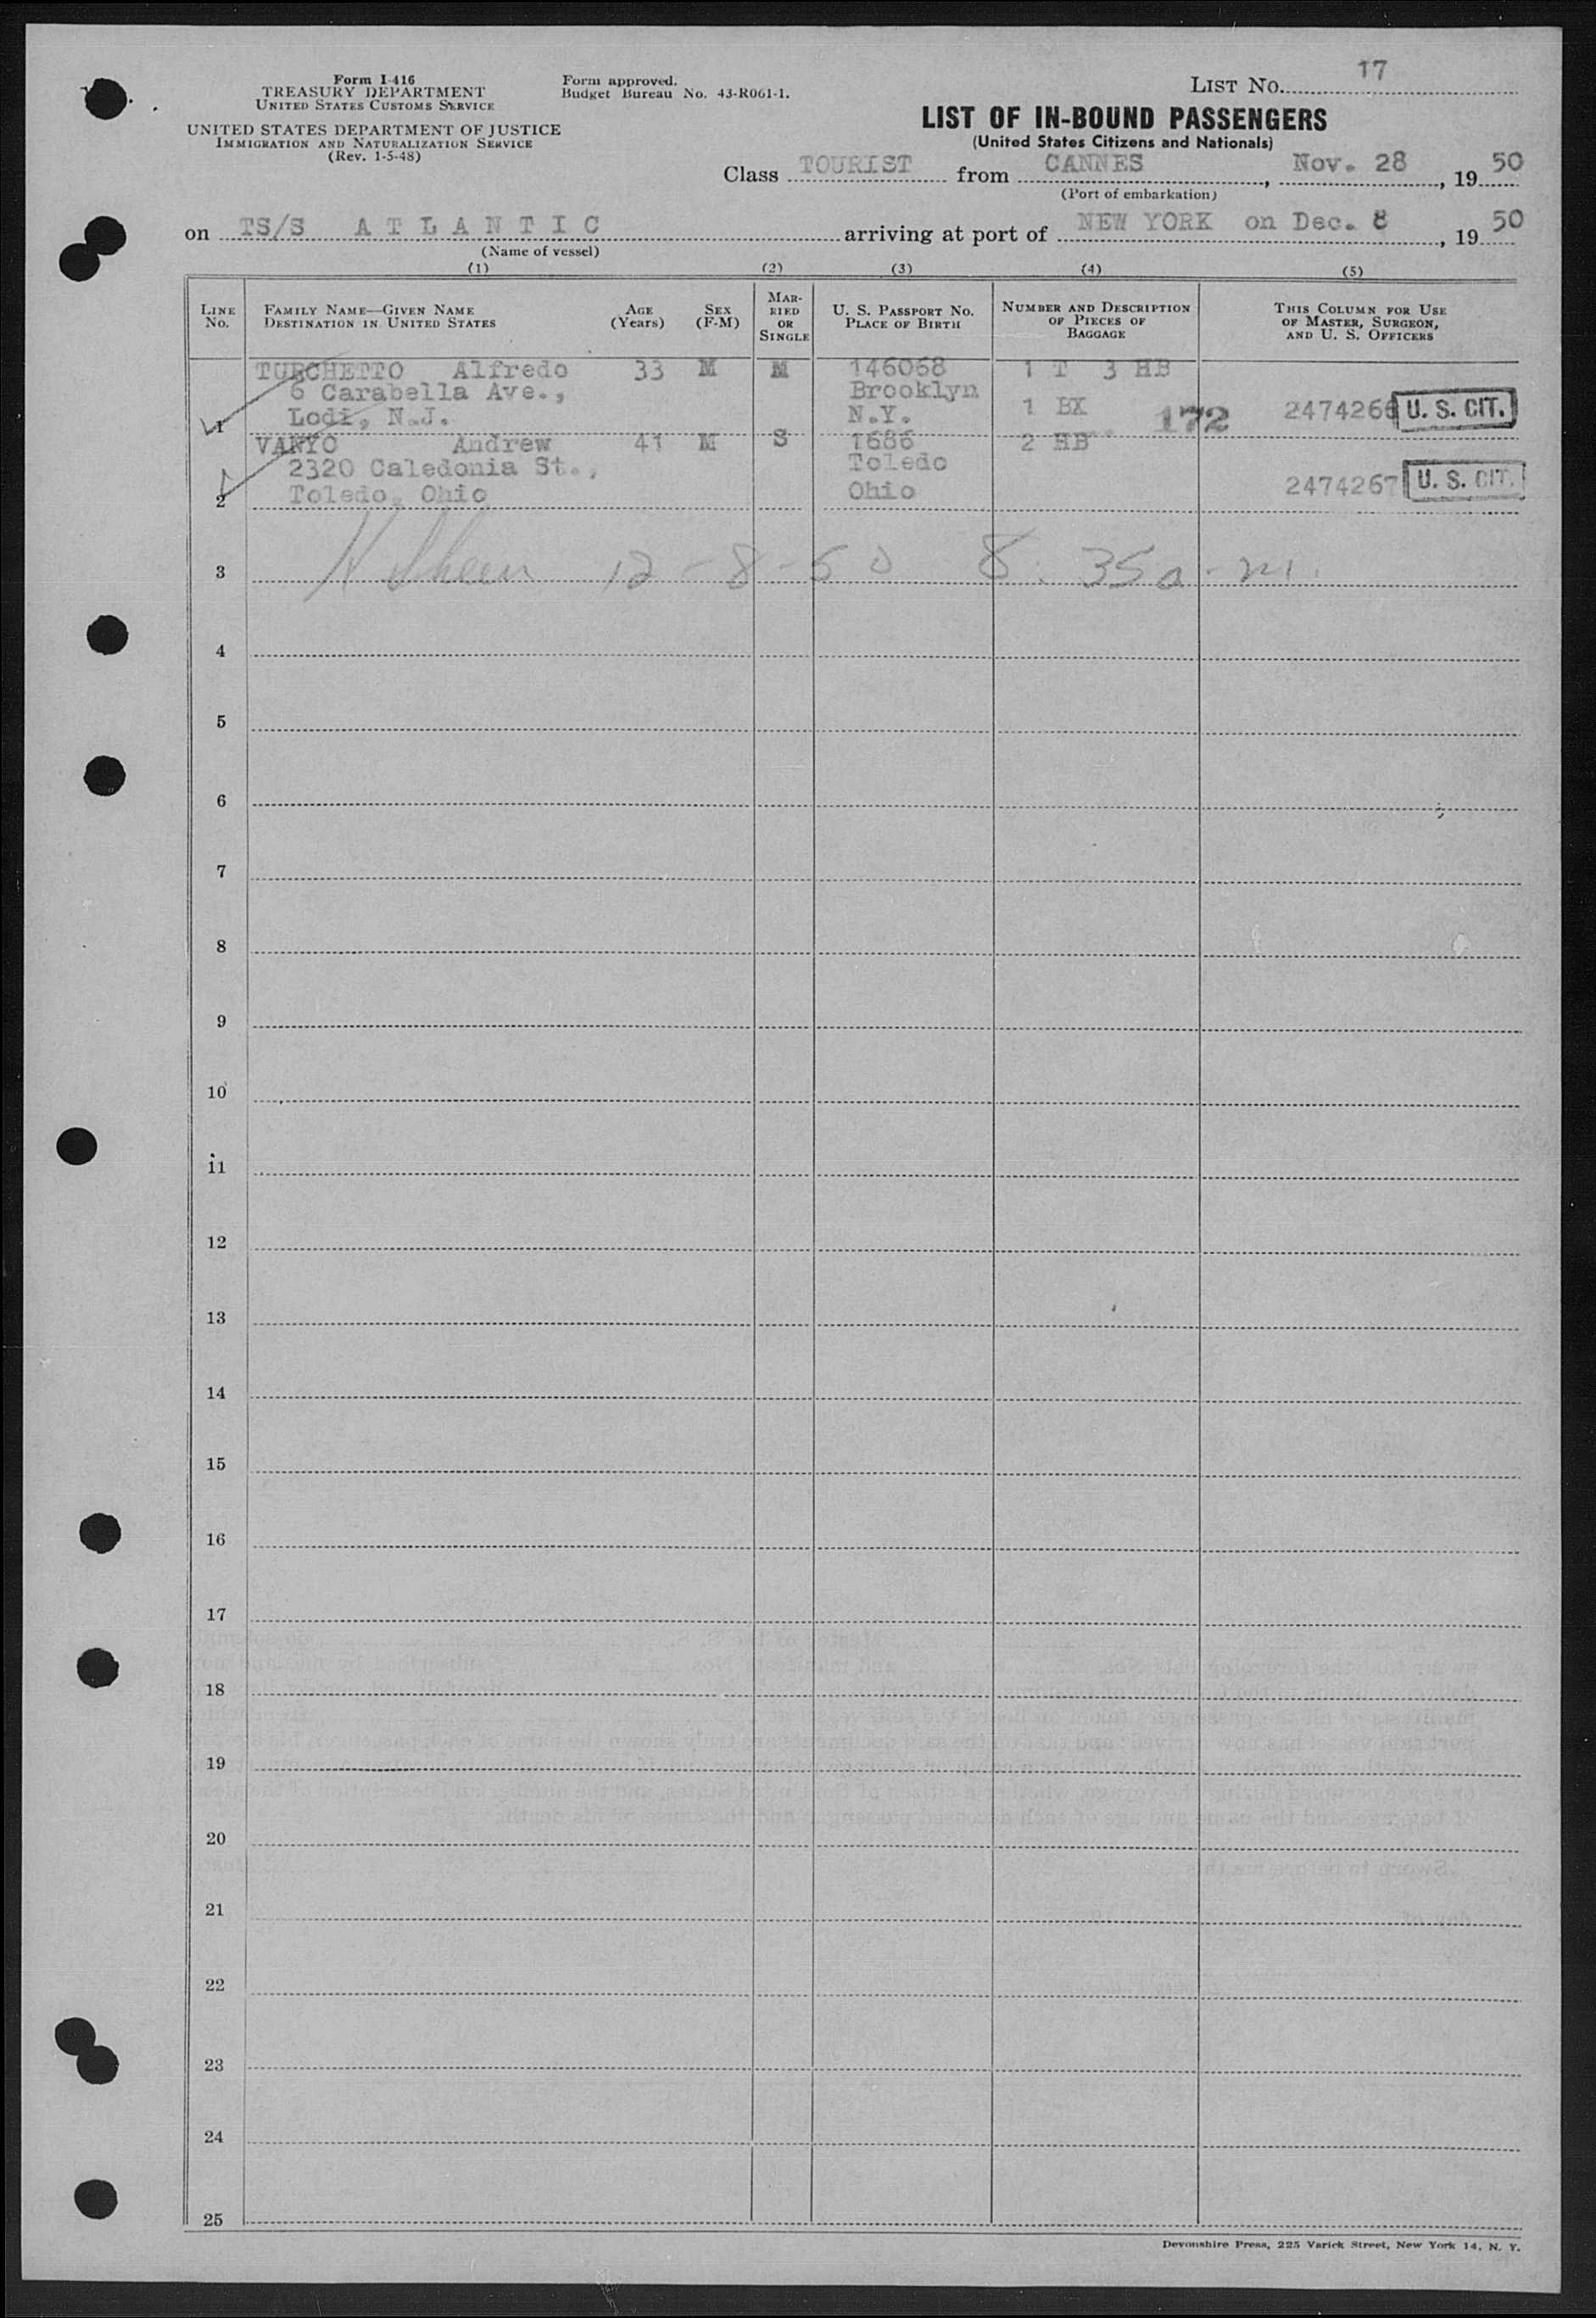 Form I-416
TREASURY DEPARTMENT
UNITED STATES CUSTOMS SERVICE
UNITED STATES DEPARTMENT OF JUSTICE
IMMIGRATION AND NATURALIZATION SERVICE
(Rev. 1-5-48)
Form approved.
Budget Bureau No. 43-R061-1.
LIST No. 17
LIST OF IN-BOUND PASSENGERS
(United States Citizens and Nationals)
Class TOURIST from CANNES, Nov. 28, 1950
(Port of embarkation)
on TS/S ATLANTIC arriving at port of NEW YORK on Dec. 8, 1950
(Name of vessel)
(1) (2) (3) (4) (5)
LINE No. FAMILY NAME—GIVEN NAME DESTINATION IN UNITED STATES AGE (Years) SEX (F-M) MARRIED OR SINGLE U. S. PASSPORT No. PLACE OF BIRTH NUMBER AND DESCRIPTION OF PIECES OF BAGGAGE THIS COLUMN FOR USE OF MASTER, SURGEON, AND U. S. OFFICERS
TURCHETTO Alfredo 33 M M 146068 1 T 3 HB
6 Carabella Ave., Brooklyn
1 Lodi, N.J. N.Y. 1 BX 172 2474266 U. S. CIT.
VANYO Andrew 41 M S 1686 2 HB
2320 Caledonia St., Toledo
2 Toledo, Ohio Ohio 2474267 U. S. CIT.
3 12-8-50 8:35 a.m.
4
5
6
7
8
9
10
11
12
13
14
15
16
17
18
19
20
21
22
23
24
25
Devonshire Press, 225 Varick Street, New York 14, N. Y.